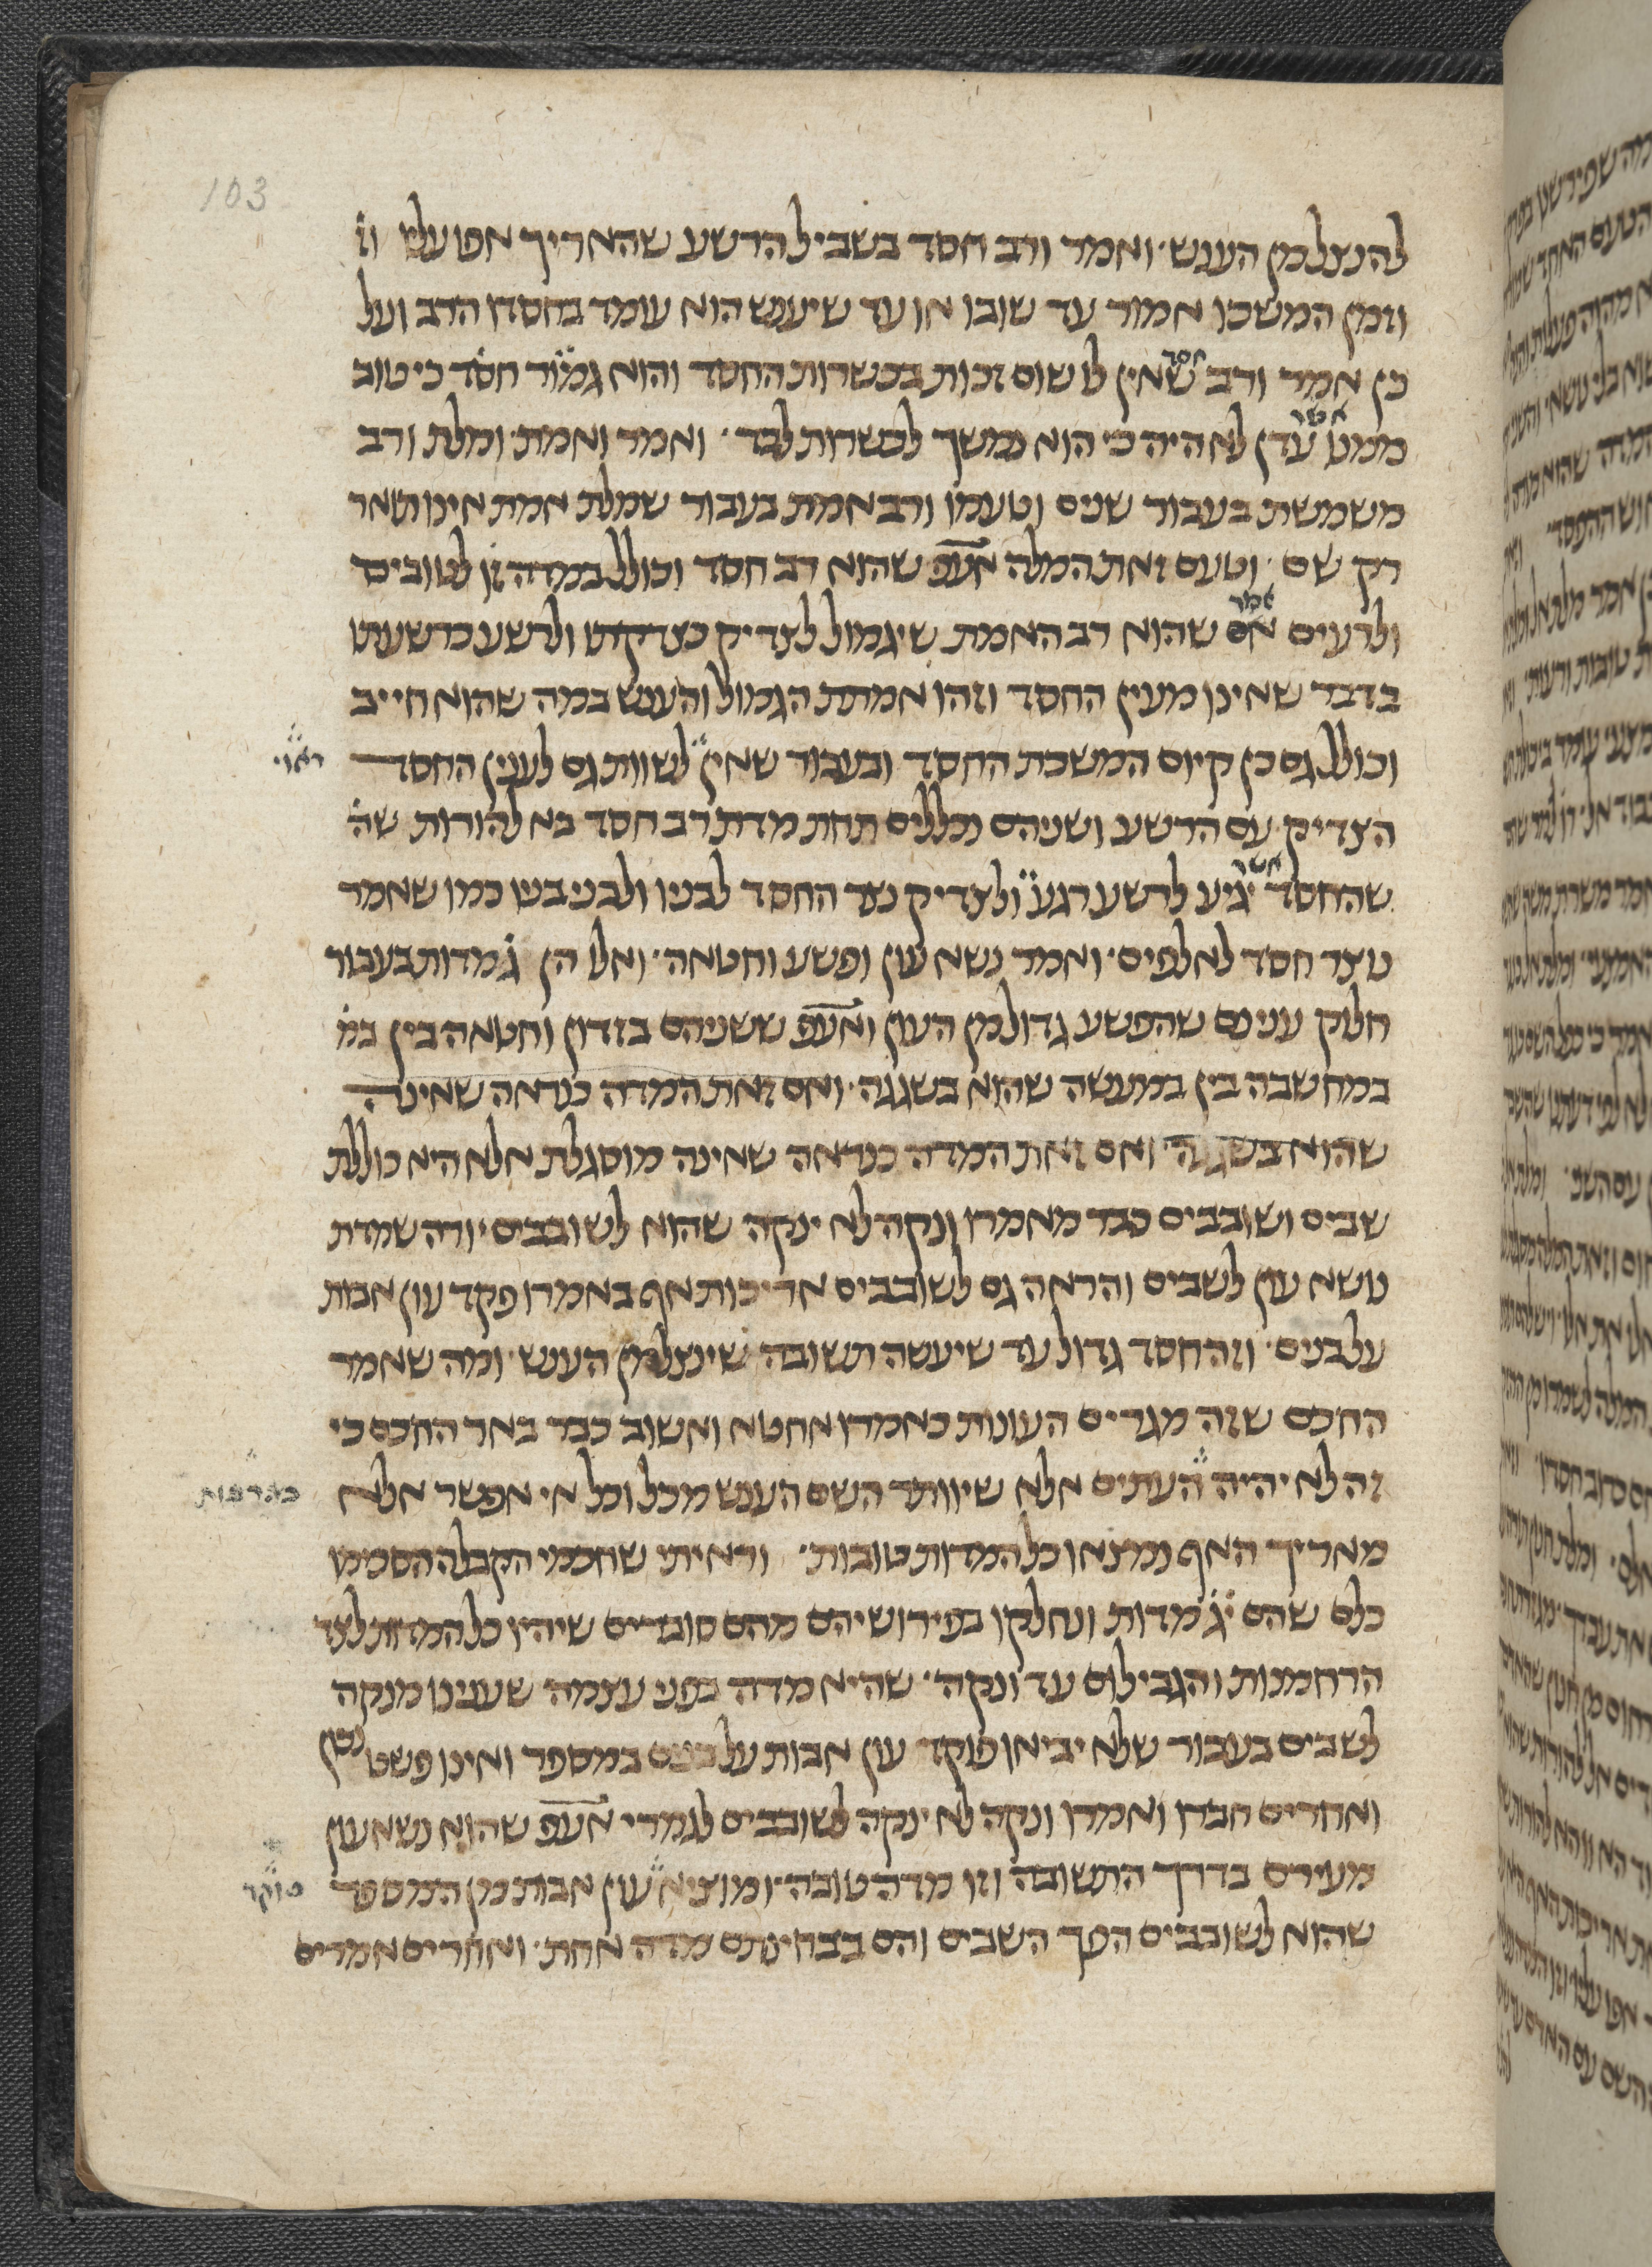 103
להנצל מן העונש׳ ואמר ורב חסד בשביל הרשע שהאריך אפו עליו וז
וזמן המשכו אמור עד שובו או עד שיענש הוא עומד בחסדו הרב ועל
כן אמר ורב חסד שאין לו שום זכות בכשרות החסד והוא גמור חסד כי טוב
ממנו אשר עדן לא היה כי הוא נמשך לכשרות לבד׳ ואמר ואמת׳ ומלת ורב
משמשת בעבור שנים וטעמו ורב אמת בעבור שמלת אמת אינו תואר
רק שם׳ וטעם זאת המלה אעפ שהוא רב חסד וכולל במדה זו לטובים
ולרעים אמר אם שהוא רב האמת שיגמול לצדיק כצדקתו ולרשע כרשעתו
בדבר שאינו מעין החסד וזהו אמתת הגמול והעונש במה שהוא חייב
וכולל גם כן קיום המשכת החסד ובעבור שאין לשוות גם לענין החסד
ראוי
הצדיק עם הרשע ושניהם נכללים תחת מדת רב חסד בא להורות שה
שהחסד אשר יגיע לרשע רגע ולצדיק נצר החסד לבניו ולבני בניו כמו שאמר
נוצר חסד לאלפים׳ ואמר נשא עון ופשע וחטאה׳ ואלו הן ג׳ מדות בעבור
חלוק ענינם שהפשע גדול מן העון ואעפ ששניהם בזדון וחטאה בין במ
במחשבה בין במעשה שהוא בשגגה׳ ואם זאת המדה כנראה שאינה
שהוא בשגגה ואם זאת המדה כנראה שאינה מוסגלת אלא היא כוללת
שבים ושובבים כבר מאמרו ונקה לא ינקה שהוא לשובבים יורה שמדת
נושא עון לשבים והראה גם לשובבים אריכות אף באמרו פקד עון אבות
על בנים׳ וזה חסד גדול עד שיעשה תשובה שינצל מן העונש׳ ומה שאמר
החכם שזה מגרים העונות כאמרו אחטא ואשוב כבר באר החכם כי
זה לא יהיה העתים אלא שיוותר השם העונש מכל וכל אי אפשר אלא
מאריך האף נמצאו כל המדות טובות׳ וראיתי שחכמי הקבלה הסכימו
כלם שהם יג׳ מדות ונחלקו בפירושיהם מהם סוברים שיהיו כל המדות לצד
הרחמנות והגבילום עד ונקה׳ שהיא מדה בפני עצמה שענינו מנקה
לשבים בעבור שלא יביאו פוקד עון אבות על בנים במספר ואינו פשט נכון
ואחרים חברו ואמרו ונקה לא ינקה לשובבים לגמרי אעפ שהוא נשא עון
מעירם בדרך התשובה וזו מדה טובה׳ ומוציא עון אבות מן המספר
פוקד
שהוא לשובבים הפך השבים והם בבחינתם מדה אחת׳ ואחרים אמרים